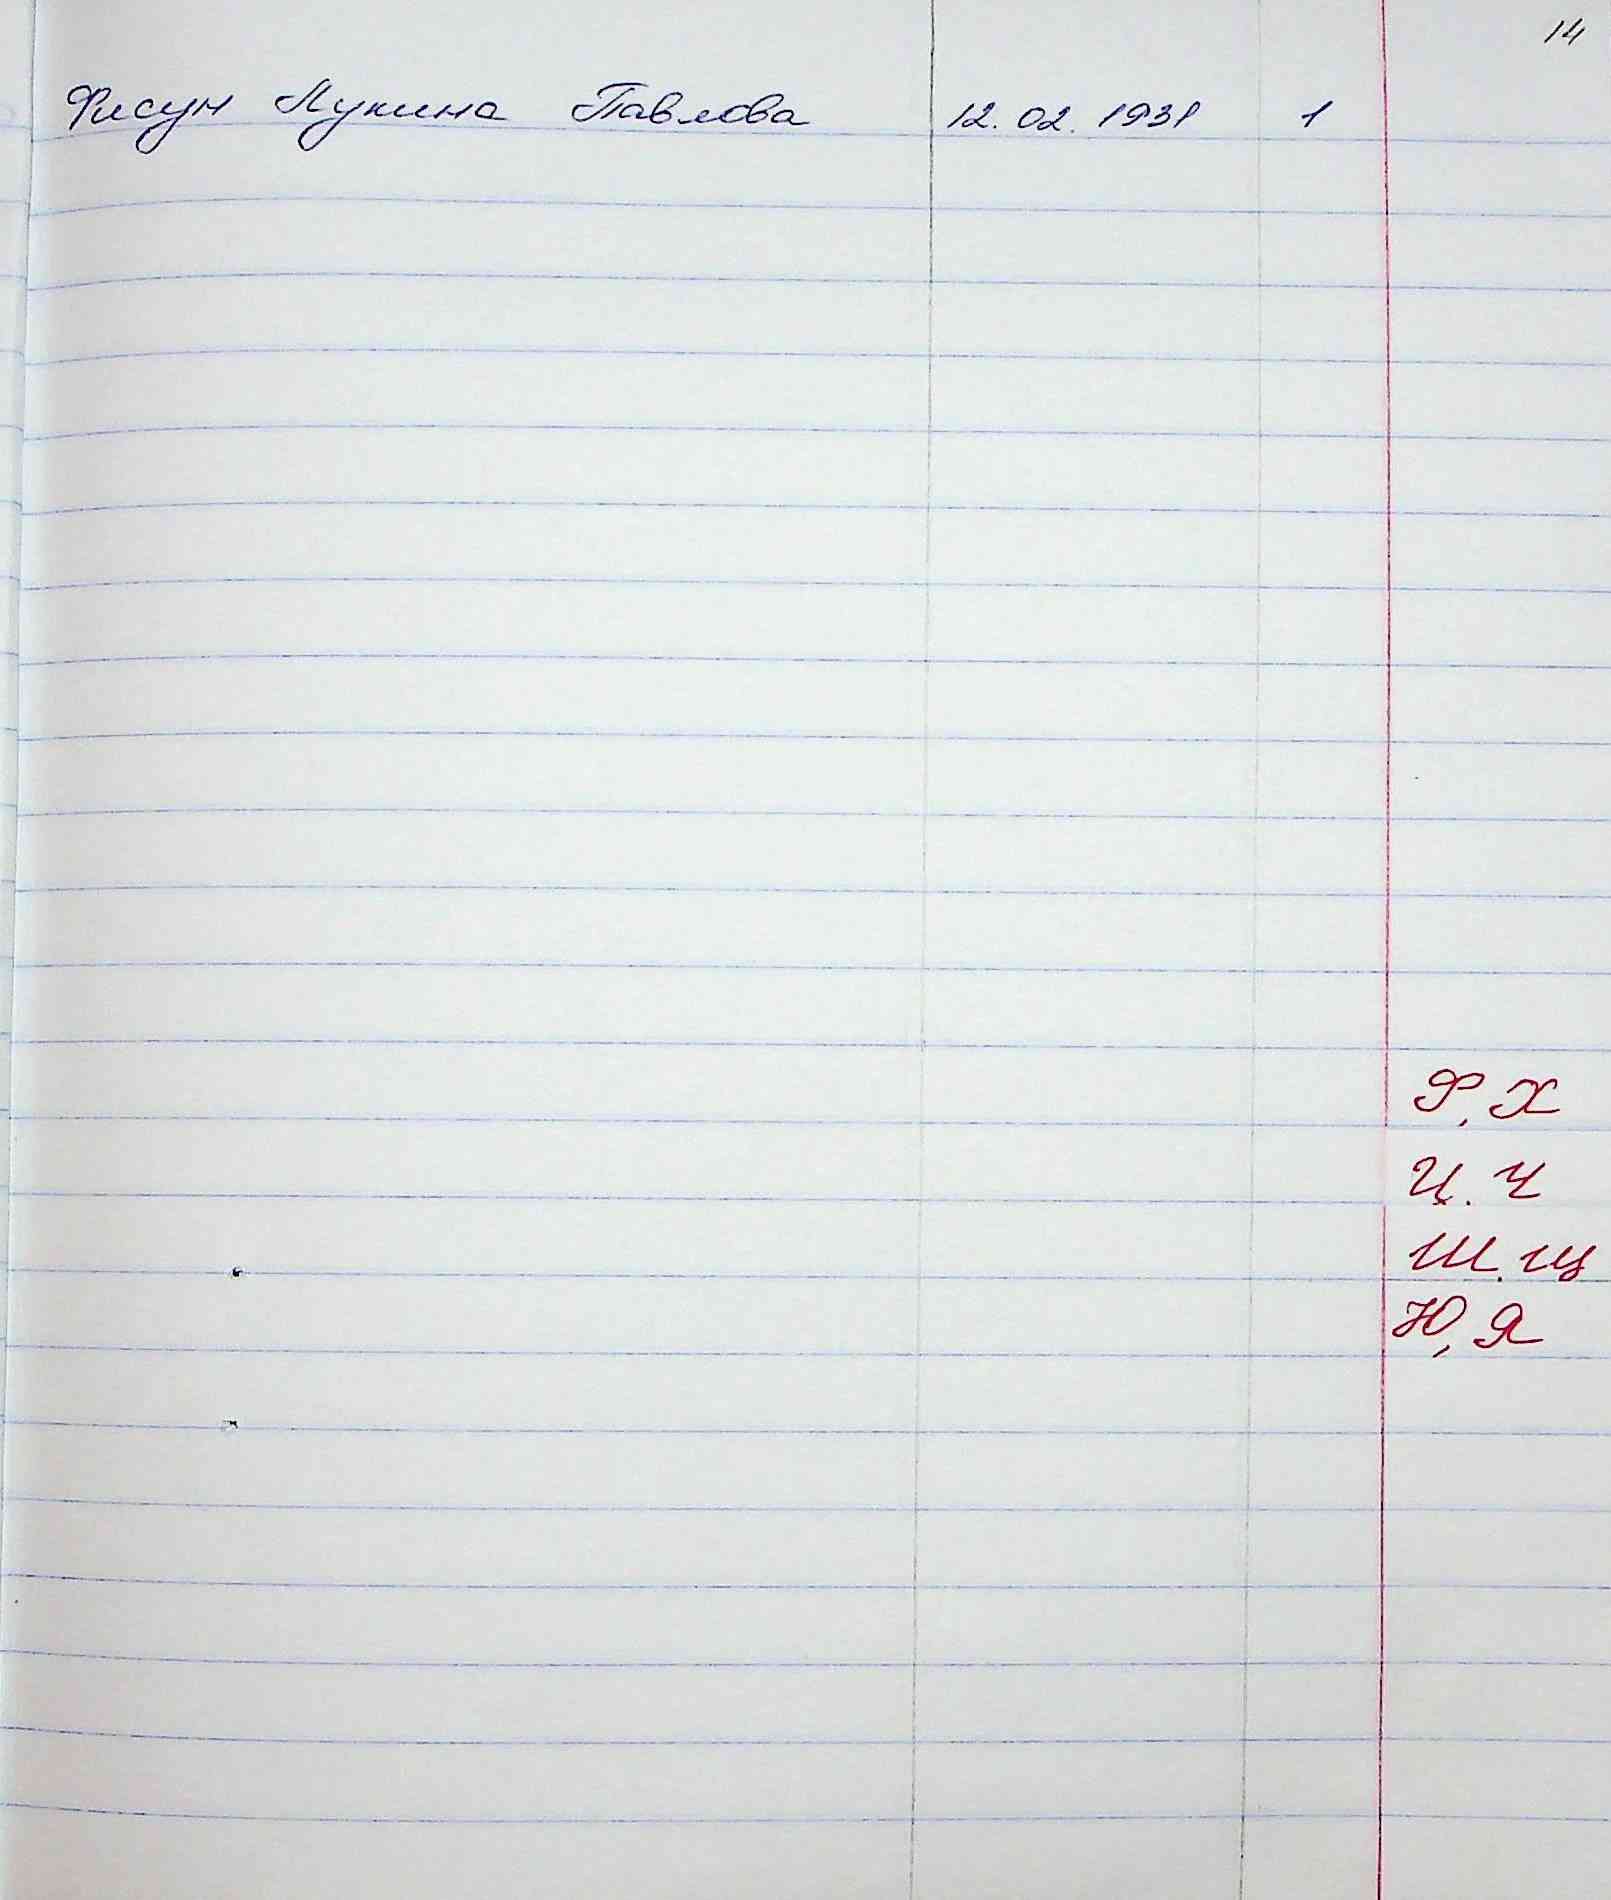 14
Фисун Лукина Павлова 12.02.1931 1
Ф, Х
Ц. Ч
Ш. Щ
Ю, Я